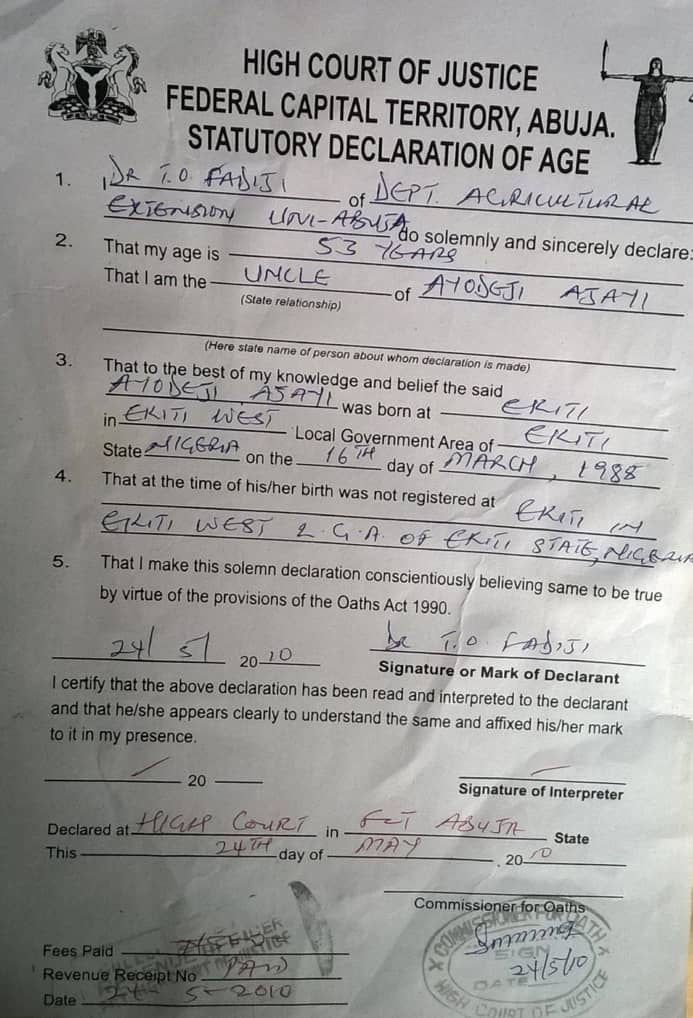 HIGH COURT OF JUSTICE
FEDERAL CAPITAL TERRITORY, ABUJA.
STATUTORY DECLARATION OF AGE
1. I, DR T.O. FADIJI of DEPT. AGRICULTURAL
EXTENSION UNI-ABUJA do solemnly and sincerely declare:
2. That my age is 53 YEARS
That I am the UNCLE of AYODEJI AJAYI
(State relationship)
(Here state name of person about whom declaration is made)
3. That to the best of my knowledge and belief the said
AYODEJI AJAYI was born at EKITI
in EKITI WEST Local Government Area of EKITI
State NIGERIA on the 16TH day of MARCH, 1988
4. That at the time of his/her birth was not registered at EKITI IN
EKITI WEST L.G.A. OF EKITI STATE, NIGERIA
5. That I make this solemn declaration conscientiously believing same to be true
by virtue of the provisions of the Oaths Act 1990.
24/5/ 2010 DR T.O. FADIJI
Signature or Mark of Declarant
I certify that the above declaration has been read and interpreted to the declarant
and that he/she appears clearly to understand the same and affixed his/her mark
to it in my presence.
20
Signature of Interpreter
Declared at HIGH COURT in FCT ABUJA State
This 24TH day of MAY, 2010
Commissioner for Oaths
COMMISSIONER FOR OATH
SIGN
24/5/10
DATE
HIGH COURT OF JUSTICE
Fees Paid
Revenue Receipt No PAID
Date 24-5-2010